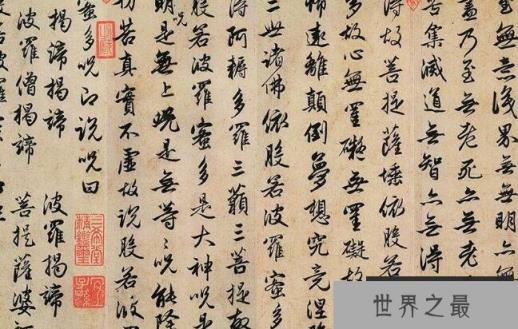 至無意識界無無明亦
盡乃至無老死亦無老
苦集滅道無智亦無得
得故菩提薩埵依般若
多故心無罣礙無罣礙故
怖遠離顛倒夢想究竟涅
三世諸佛依般若波羅蜜多
得阿耨多羅三藐三菩提故
般若波羅蜜多是大神呪
明呪是無上呪是無等等呪能除
苦真實不虛故說般若波
蜜多呪即說呪曰
揭諦揭諦 波羅揭諦
波羅僧揭諦 菩提薩婆
世界之最